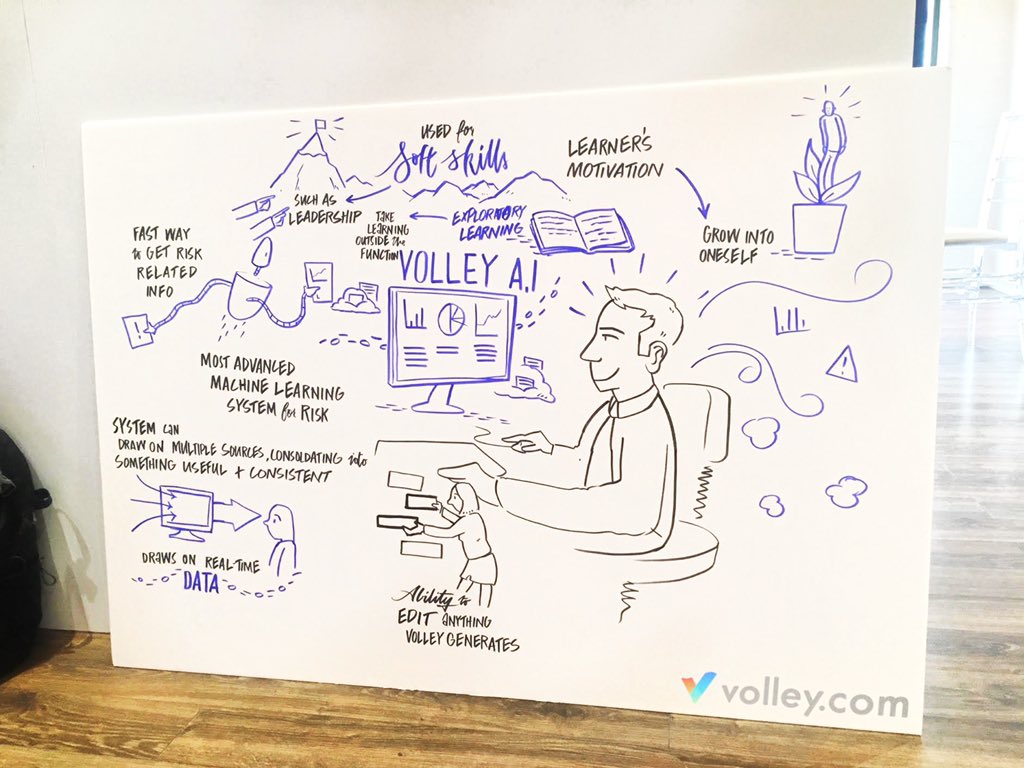 USED for
Soft Skills
SUCH AS
LEADERSHIP
TAKE
LEARNING
OUTSIDE the
FUNCTION
EXPLORATORY
LEARNING
LEARNER'S
MOTIVATION
GROW INTO
ONESELF
FAST WAY
to GET RISK
RELATED
INFO
VOLLEY A.I
MOST ADVANCED
MACHINE LEARNING
SYSTEM for RISK
SYSTEM can
DRAW ON MULTIPLE SOURCES, CONSOLDATING into
SOMETHING USEFUL + CONSISTENT
DRAWS ON REAL-TIME
DATA
Ability to
EDIT anything
VOLLEY GENERATES
volley.com